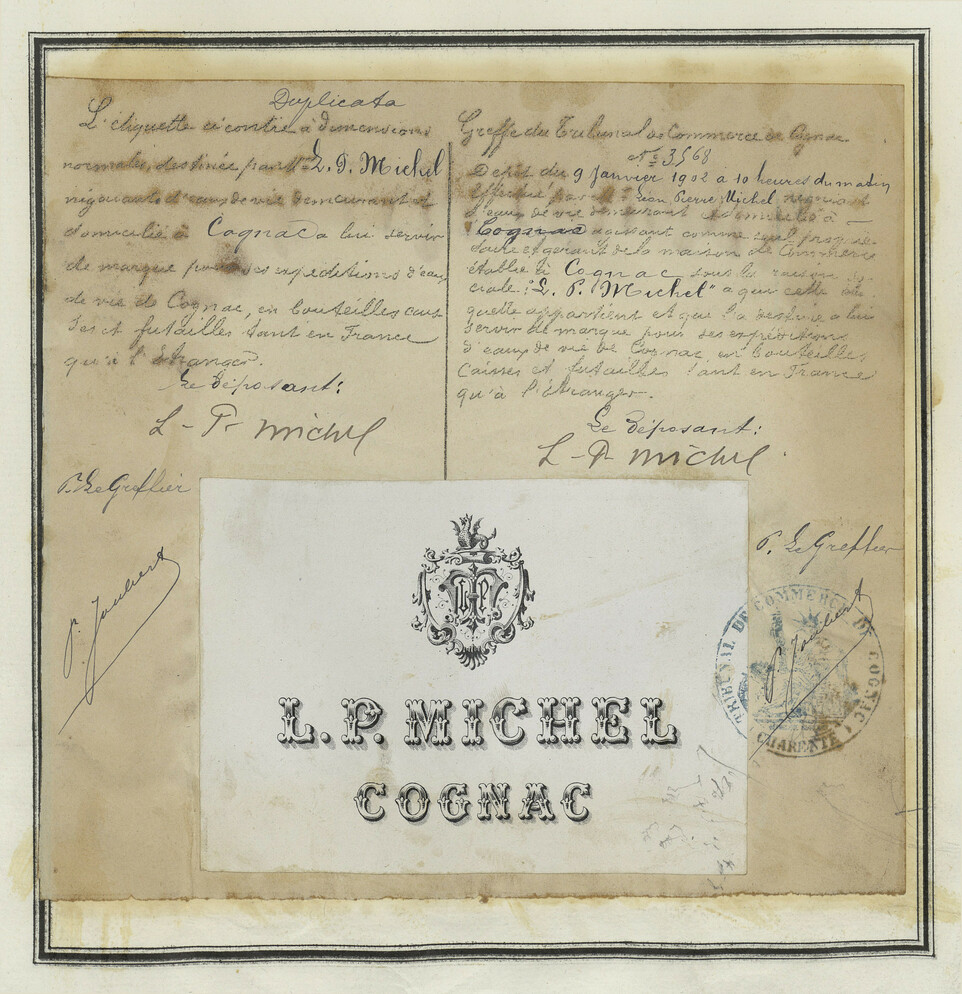 Duplicata
L'étiquette ci contre à dimensions
normales, destinée par Mr L. P. Michel
négociant d'eaux de vie demeurant et
domicilié à Cognac a lui servir
de marque pour ses expéditions d'eaux
de vie de Cognac, en bouteilles cais
ses et futailles tant en France
qu'à l'étranger.
Le déposant:
L-P- Michel
P. Le Greffier
P. Joubert
Greffe du Tribunal de Commerce de Cognac
No 3568
Dépôt du 9 Janvier 1902 à 10 heures du matin
Effectué par Mr Pierre Michel négociant
d'eaux de vie demeurant et domicilié à
Cognac agissant comme seul proprié
taire et gérant de la maison de Commerce
établie à Cognac sous la raison so
ciale: "L. P. Michel" à qui cette éti
quette appartient et que la destine a lui
servir de marque pour ses expéditions
d'eaux de vie de Cognac, en bouteilles
caisses et futailles tant en France
qu'à l'étranger.
Le déposant:
L-P- Michel.
P. Le Greffier
P. Joubert
TRIBUNAL DE COMMERCE DE COGNAC
CHARENTE
L.P. MICHEL
COGNAC